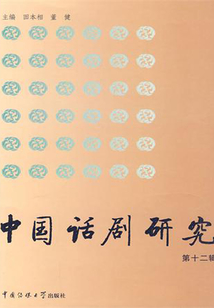 主编 田本相 董健
中国话剧研究
第十二辑
中国传媒大学出版社